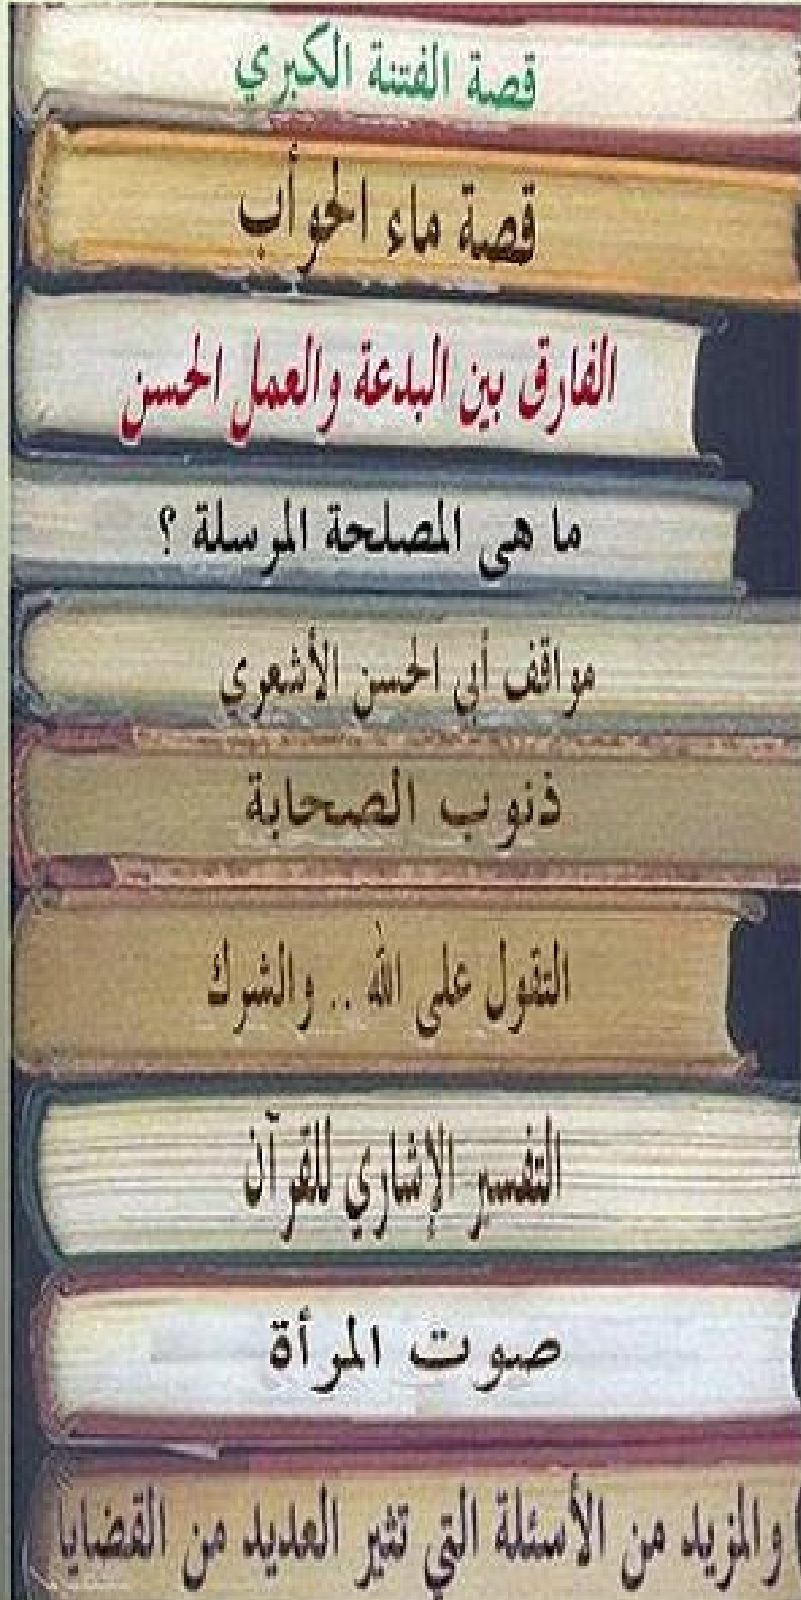 قصة الفتنة الكبري
قصة ماء الحوأب
الفارق بين البدعة والعمل الحسن
ما هي المصلحة المرسلة ؟
مواقف أبي الحسن الأشعري
ذنوب الصحابة
التقول على الله .. والشرك
التفسير الإشاري للقرآن
صوت المرأة
والمزيد من الأسئلة التي تثير العديد من القضايا